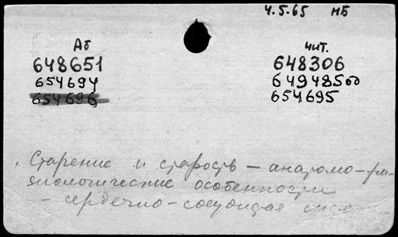 4.5.65 НБ
Аб
648651
654694
654696
чит.
648306
649485оо
654695
Старение и старость – анатомо-физиологические особенности
– сердечно-сосудистая